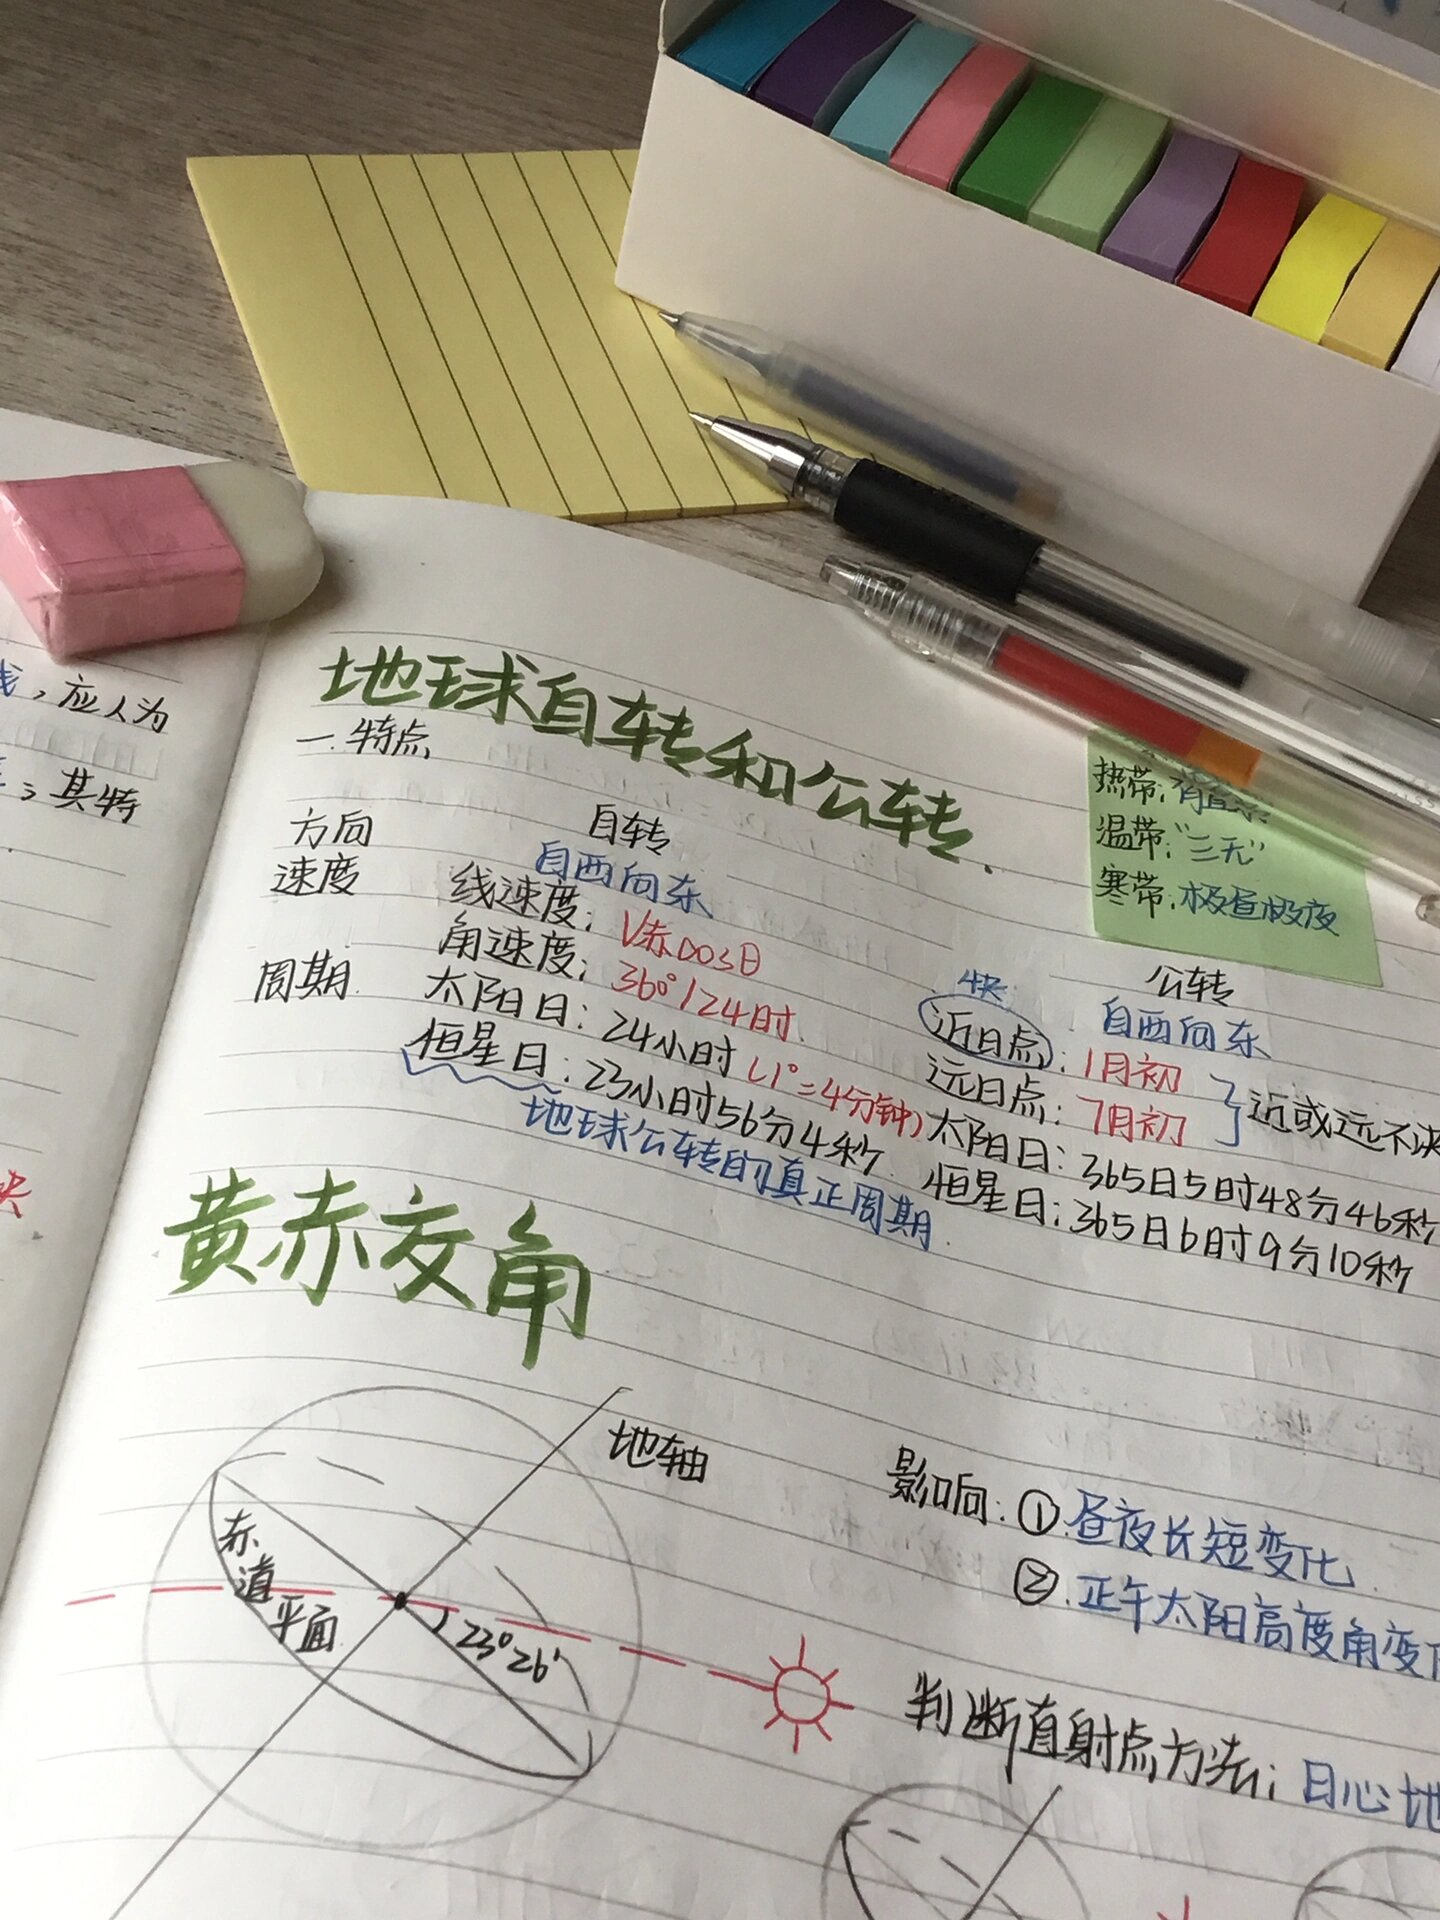 线，应人为
；其特
地球自转和公转
一.特点
热带：有直射
温带："三无"
寒带：极昼极夜
自转
公转
方向
自西向东
自西向东
速度
线速度：V赤
角速度：360°/24时
快
近日点：1月初
远日点：7月初
近或远不决
周期
太阳日：24小时（1°=4分钟）
恒星日：23小时56分4秒
地球公转的真正周期
太阳日：365日5时48分46秒
恒星日：365日6时9分10秒
黄赤交角
地轴
赤道平面
23°26′
影响：①昼夜长短变化
②正午太阳高度角变
判断直射点方法：日心地